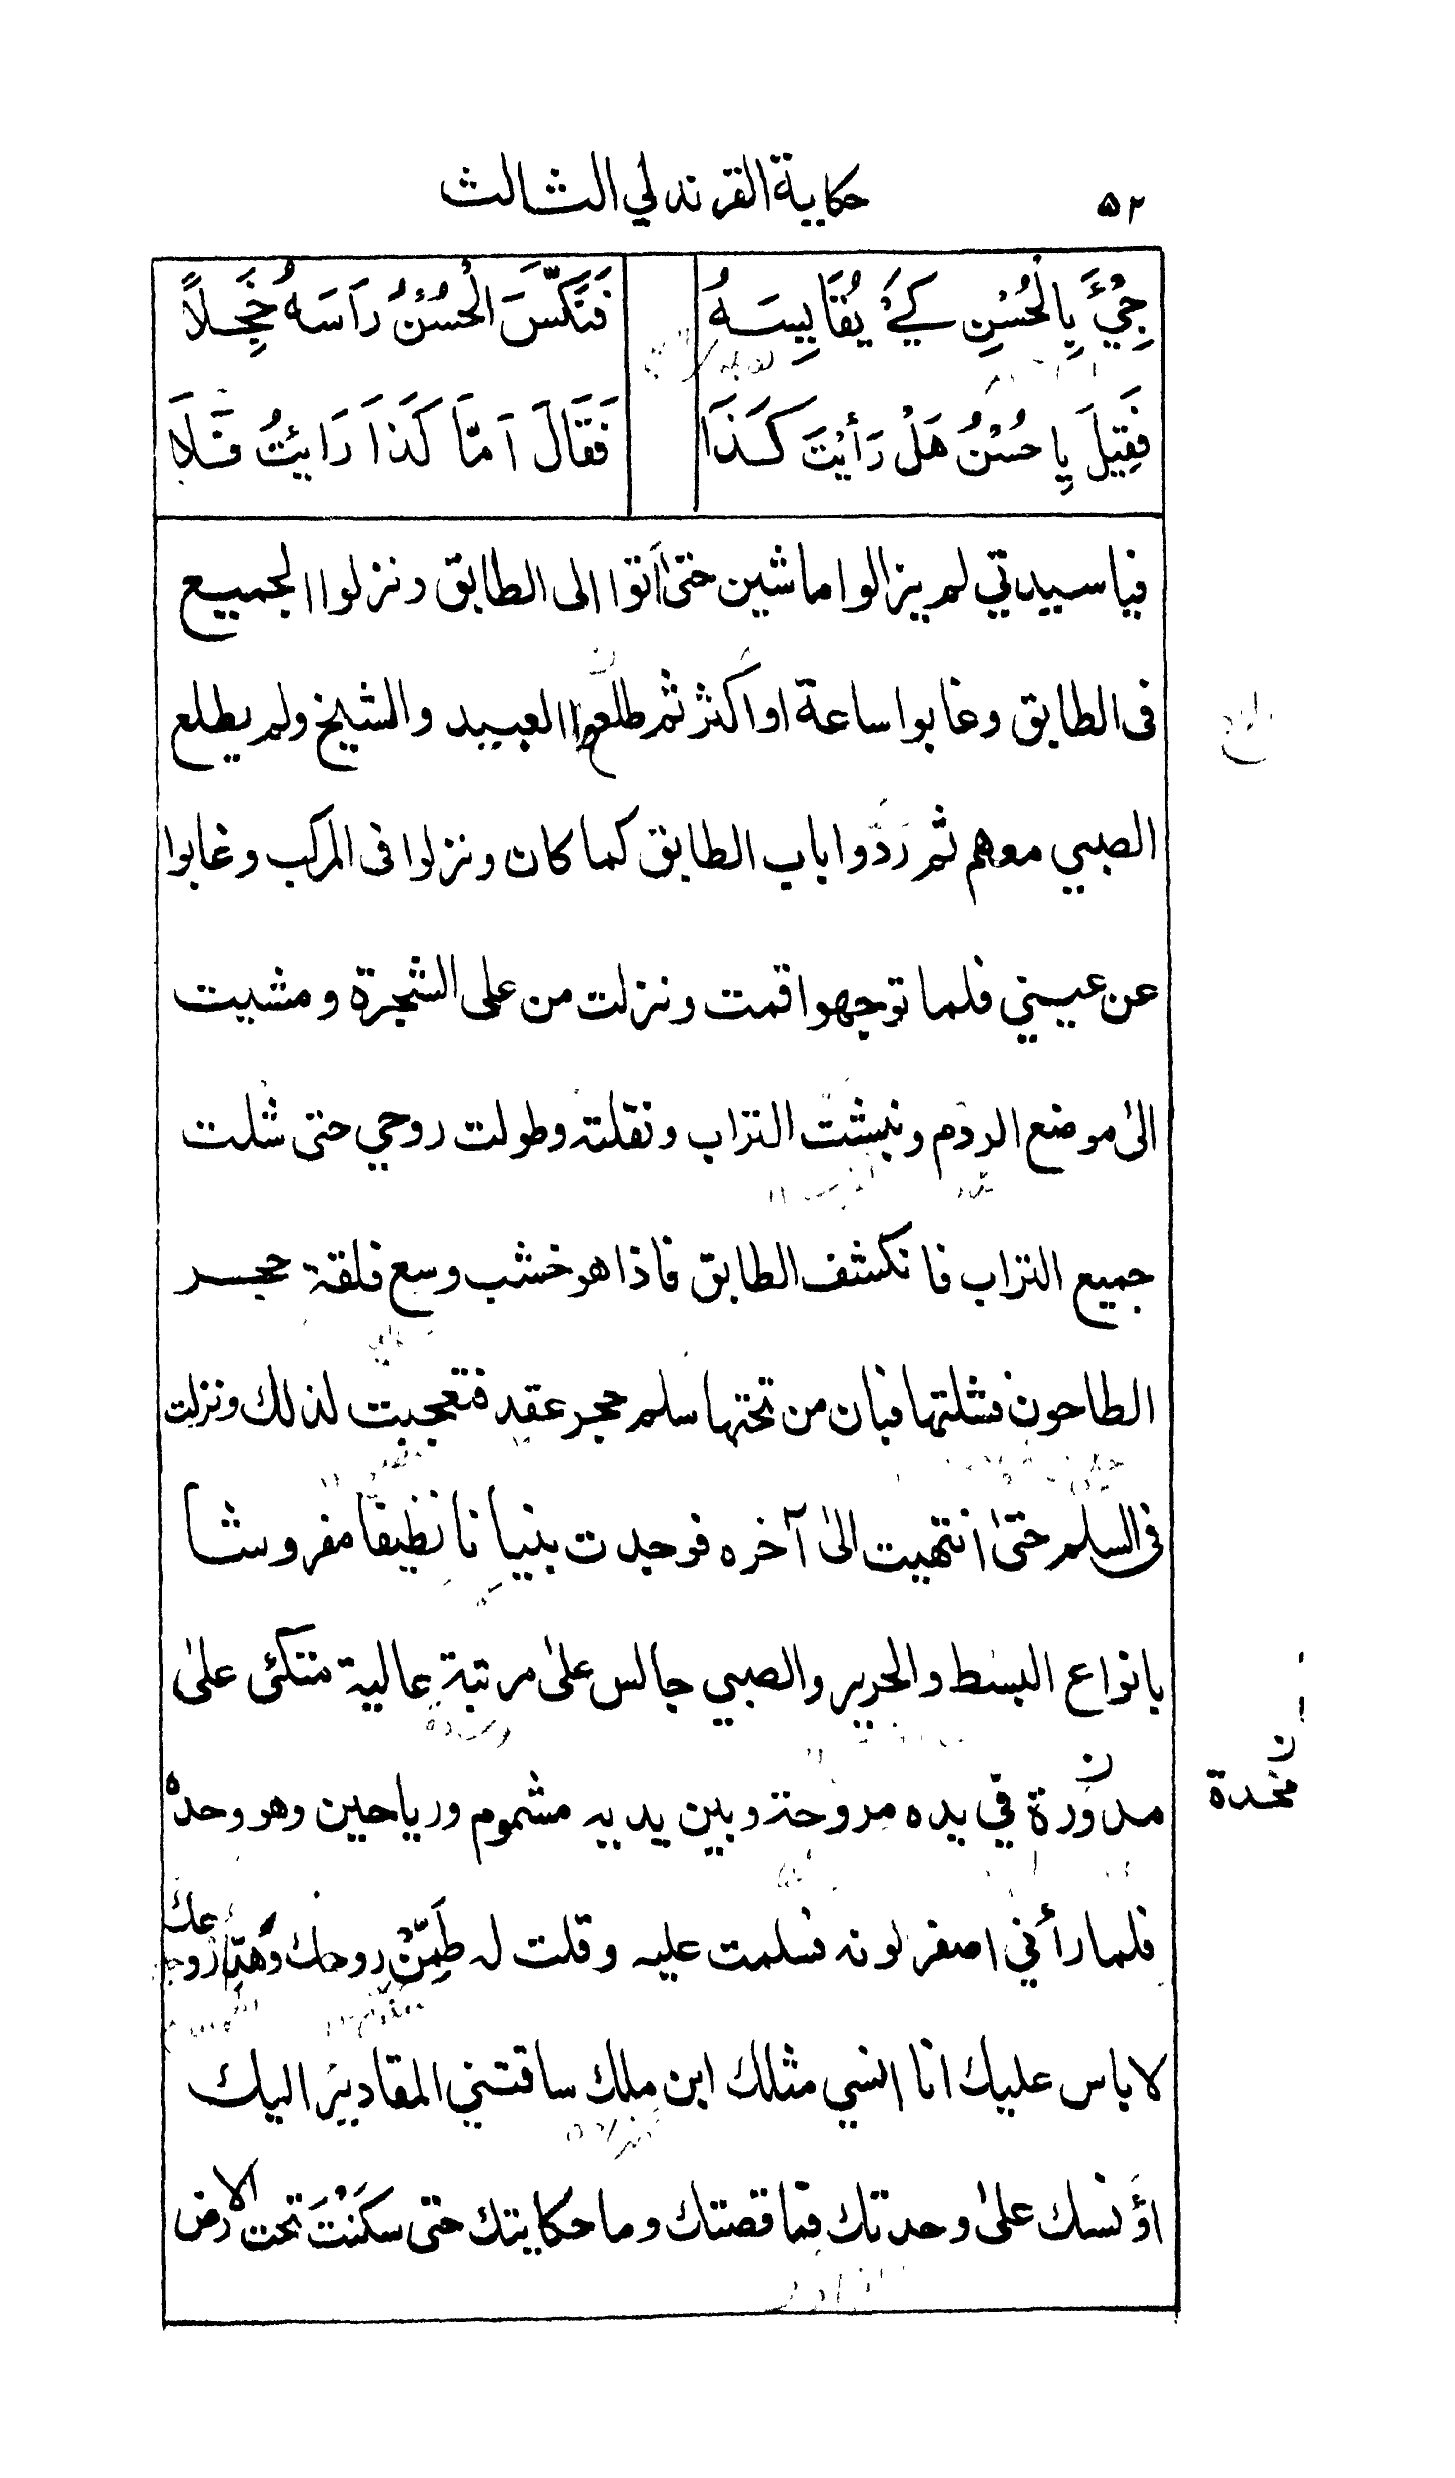 ۵۲ حكاية القرندلي الثالث
جِيْءَ بِالْحُسْنِ كَيْ يُقَايِسَهُ فَنَكَّسَ الْحُسْنُ رَاسَهُ خَجِلًا
فَقِيلَ يِا حُسْنُ هَلْ رَأَيْتَ كَذَا فَقَالَ اَمَّا كَذَا رَايَتُ فَلَا
فيا سيدتي لم يزالوا ماشين حتىٰ اَتوا الى الطابق ونزلوا الجميع
فى الطابق وغابوا ساعة او اكثر ثم طلعوا العبيد والشيخ ولم يطلع
الصبي معهم ثم رَدّوا باب الطابق كما كان ونزلوا فى المركب وغابوا
عن عيني فلما توجهوا قمت ونزلت من على الشجرة ومشيت
الىٰ موضع الردم ونبشت التراب ونقلته وطولت روحي حتى شلت
جميع التراب فانكشف الطابق فاذا هو خشب وسع فلقة حجر
الطاحون فشلتها فبان من تحتها سلم حجر عقد فتعجبت لذلك ونزلت
فى السلم حتىٰ انتهيت الىٰ آخره فوجدت بنيانا نظيفا مفروشا
بانواع البسط والحرير والصبي جالس علىٰ مرتبة عالية متكئ علىٰ
مدوّرة في يده مروحة وبين يديه مشموم ورياحين وهو وحدهُ
ن
مخدة
فلما رأني اصفر لونه فسلمت عليه وقلت له طَمِّنْ روحك وَهَدِّا روعك
لا باس عليك انا انسي مثلك ابن ملك ساقتني المقادير اليك
اؤنسك علىٰ وحدتك فما قصتك وما حكايتك حتى سكَنْتَ تحت الارض